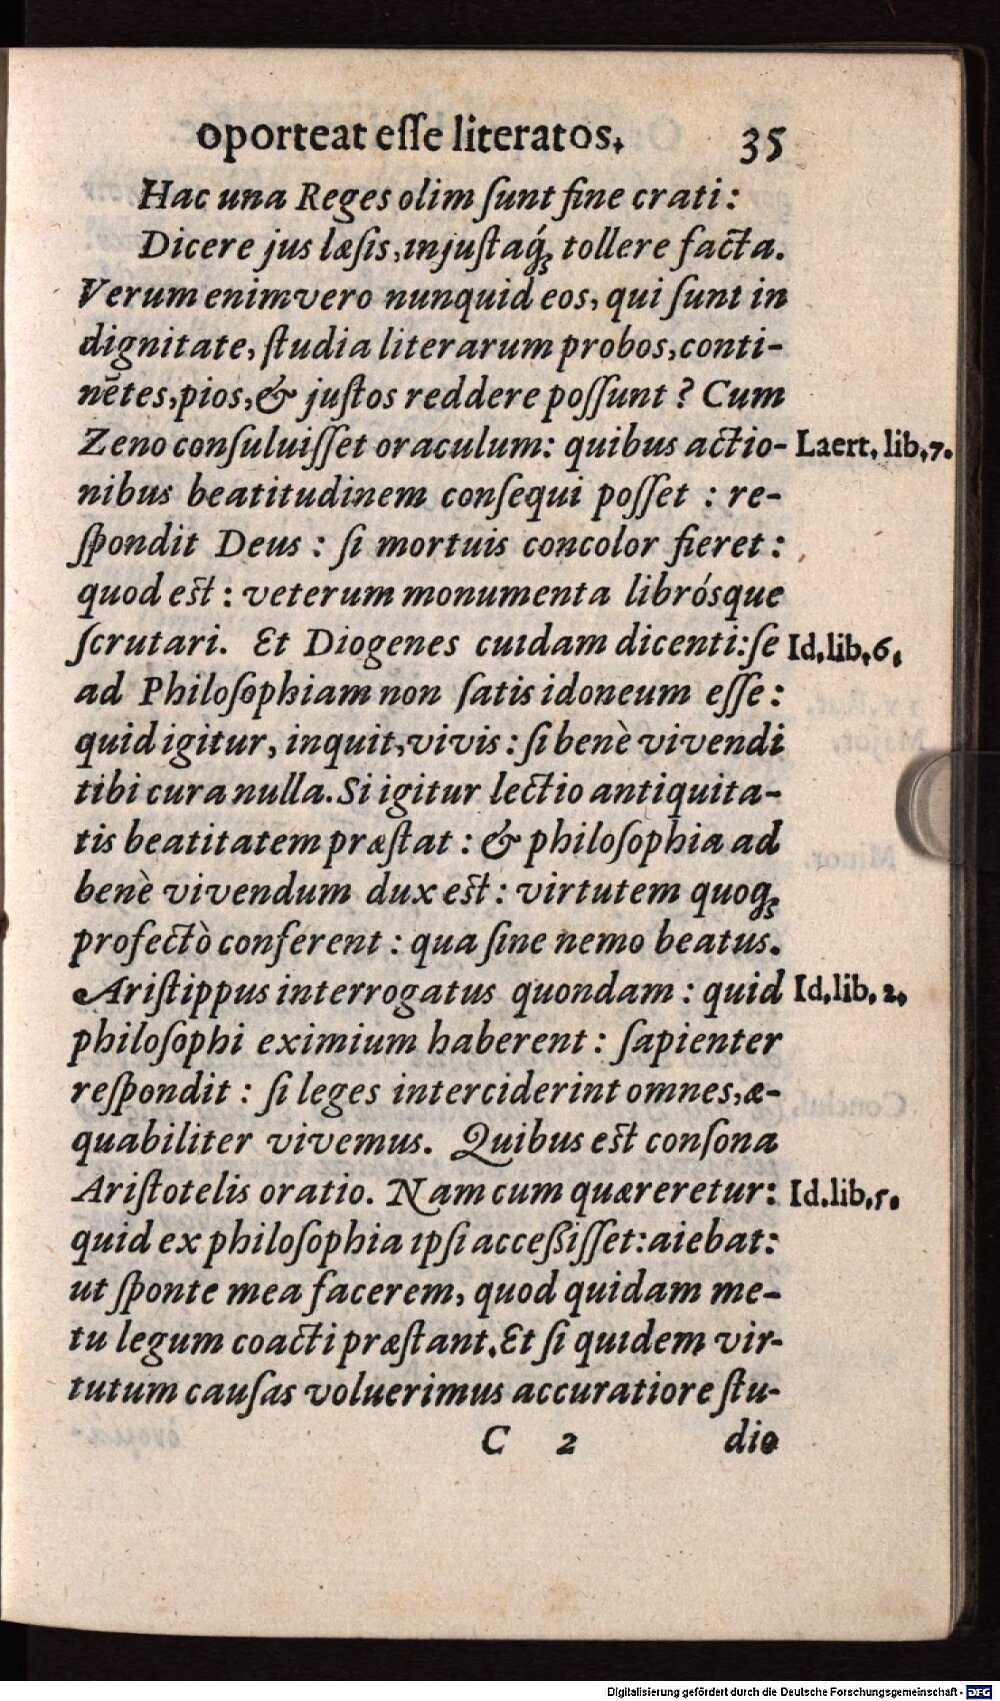 oporteat eſſe literatos. 35
Hac una Reges olim ſunt fine crati:
Dicere jus læſis, injuſtaq́ꝫ tollere facta.
Verum enimvero nunquid eos, qui ſunt in
dignitate, ſtudia literarum probos, conti-
nētes, pios, & juſtos reddere poſſunt? Cum
Zeno conſuluiſſet oraculum: quibus actio- Laert. lib. 7.
nibus beatitudinem conſequi poſſet : re-
ſpondit Deus : ſi mortuis concolor fieret:
quod eſt : veterum monumenta librósque
ſcrutari. Et Diogenes cuidam dicenti: ſe Id. lib. 6.
ad Philoſophiam non ſatis idoneum eſſe:
quid igitur, inquit, vivis: ſi benè vivendi
tibi cura nulla. Si igitur lectio antiquita-
tis beatitatem præſtat : & philoſophia ad
benè vivendum dux eſt: virtutem quoqꝫ
profectò conferent : qua ſine nemo beatus.
Ariſtippus interrogatus quondam: quid Id. lib. 2.
philoſophi eximium haberent: ſapienter
reſpondit : ſi leges interciderint omnes, æ-
quabiliter vivemus. Quibus eſt conſona
Ariſtotelis oratio. Nam cum quæreretur: Id. lib. 5.
quid ex philoſophia ipſi acceßiſſet: aiebat:
ut ſponte mea facerem, quod quidam me-
tu legum coacti præſtant. Et ſi quidem vir-
tutum cauſas voluerimus accuratiore ſtu-
C 2 dio
Digitalisierung gefördert durch die Deutsche Forschungsgemeinschaft - DFG